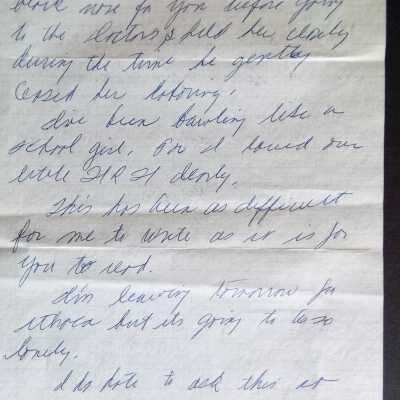 nose for you before going
to the Doctors & held her closely
during the time he gently
eased her laboring.
I've been bawling like a
school girl. For I loved our
little HRH deeply.
This has been as difficult
for me to write as it is for
you to read.
I'm leaving tomorrow for
Ithaca but its going to be so
lonely.
I do hate to ask this at